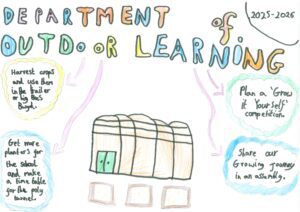 DEPARTMENT of
2025-2026
OUTDOOR LEARNING
Harvest crops
and use them
in the trailer
or big Bros
Burgd.
Plan a 'Grow
it Yourself'
competition.
Get more
planters for
the school
and make
a time table
for the poly
tunnel.
Share our
Growing journey
in an assembly.